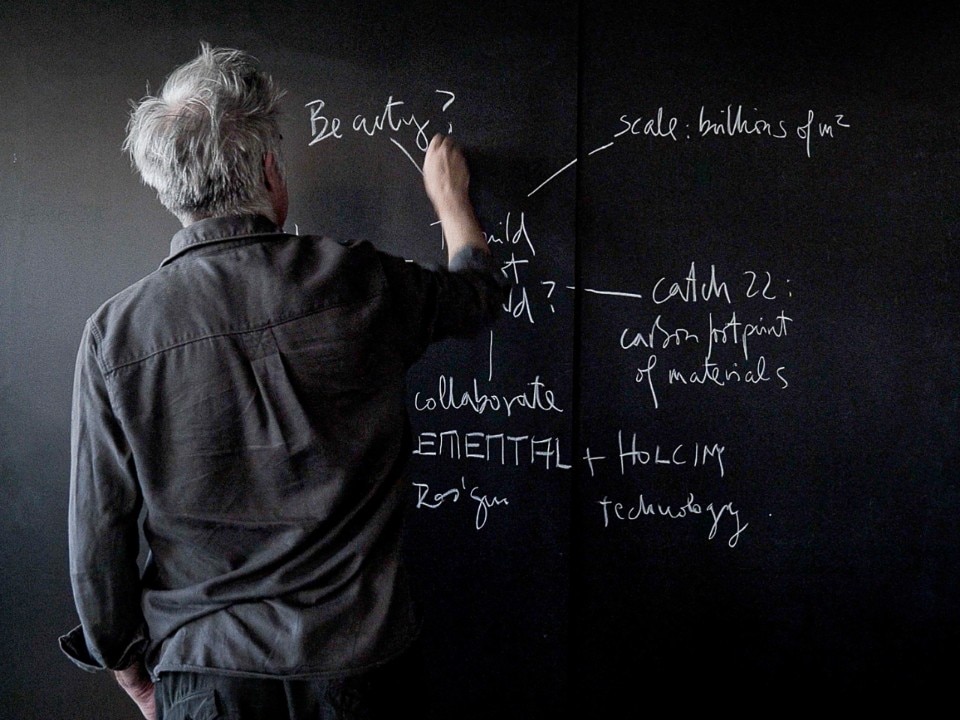 Beauty?
scale: billions of m²
?
catch 22:
carbon footprint
of materials
collaborate
EMENTAL + HOLCIM
Design
technology